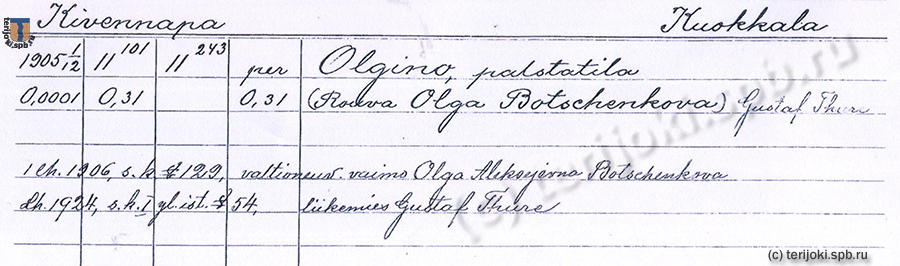 Kivennapa Kuokkala
1905 1/12 11 101 11 243 per Olgino, palstatila
0,0001 0,31 0,31 (Rouva Olga Botschenkova) Gustaf Thure
1 ch. 1906, s. k. § 122, valtioneuv. vaimo Olga Aleksejevna Botschenkova
Lh. 1924, s. k. I yl. ist. § 54, liikemies Gustaf Thure
terijoki.spb.ru
(c) terijoki.spb.ru
(c) terijoki.spb.ru